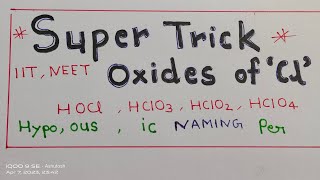 * Super Trick *
IIT, NEET Oxides of 'Cl'
HOCl, HClO3, HClO2, HClO4
Hypo, ous, ic NAMING Per
iQOO 9 SE - Ashutosh
Apr 7, 2023, 23:42